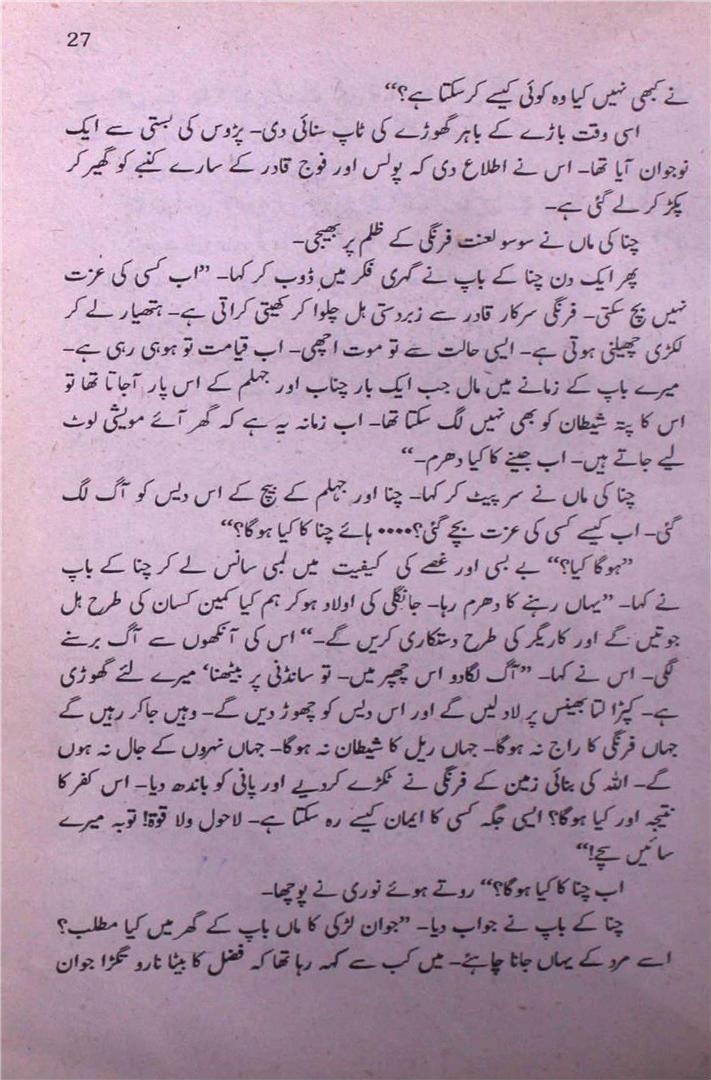 27
نے کبھی نہیں کیا وہ کوئی کیسے کرسکتا ہے؟“
اسی وقت باڑے کے باہر گھوڑے کی ٹاپ سنائی دی۔ پڑوس کی بستی سے ایک
نوجوان آیا تھا۔ اس نے اطلاع دی کہ پولس اور فوج قادر کے سارے کنبے کو گھیر کر
پکڑ کر لے گئی ہے۔
چنا کی ماں نے سو سو لعنت فرنگی کے ظلم پر بھیجی۔
پھر ایک دن چنا کے باپ نے گہری فکر میں ڈوب کر کہا۔ ”اب کسی کی عزت
نہیں بچ سکتی۔ فرنگی سرکار قادر سے زبردستی ہل چلوا کر کھیتی کراتی ہے۔ ہتھیار لے کر
لکڑی چھیلنی ہوتی ہے۔ ایسی حالت سے تو موت اچھی۔ اب قیامت تو ہو ہی رہی ہے۔
میرے باپ کے زمانے میں مال جب ایک بار چناب اور جہلم کے اس پار آجاتا تھا تو
اس کا پتہ شیطان کو بھی نہیں لگ سکتا تھا۔ اب زمانہ یہ ہے کہ گھر آئے مویشی لوٹ
لیے جاتے ہیں۔ اب جینے کا کیا دھرم۔“
چنا کی ماں نے سر پیٹ کر کہا۔ چنا اور جہلم کے بیچ کے اس دیس کو آگ لگ
گئی۔ اب کیسے کسی کی عزت بچے گئی؟۰۰۰۰ ہائے چنا کا کیا ہوگا؟“
”ہوگا کیا؟“ بے بسی اور غصے کی کیفیت میں لمبی سانس لے کر چنا کے باپ
نے کہا۔ ”یہاں رہنے کا دھرم رہا۔ جانگلی کی اولاد ہوکر ہم کیا کمین کسان کی طرح ہل
جوتیں گے اور کاریگر کی طرح دستکاری کریں گے۔“ اس کی آنکھوں سے آگ برسنے
لگی۔ اس نے کہا۔ ”آگ لگادو اس چھپر میں۔ تو سانڈنی پر بیٹھنا‘ میرے لئے گھوڑی
ہے۔ کپڑا لتا بھینس پر لاد لیں گے اور اس دیس کو چھوڑ دیں گے۔ وہیں جاکر رہیں گے
جہاں فرنگی کا راج نہ ہوگا۔ جہاں ریل کا شیطان نہ ہوگا۔ جہاں نہروں کے جال نہ ہوں
گے۔ اللہ کی بنائی زمین کے فرنگی نے ٹکڑے کردیے اور پانی کو باندھ دیا۔ اس کفر کا
نتیجہ اور کیا ہوگا؟ ایسی جگہ کسی کا ایمان کیسے رہ سکتا ہے۔ لاحول ولا قوۃ! توبہ میرے
سائیں سچے!“
اب چنا کا کیا ہوگا؟“ روتے ہوئے نوری نے پوچھا۔
چنا کے باپ نے جواب دیا۔ ”جوان لڑکی کا ماں باپ کے گھر میں کیا مطلب؟
اسے مرد کے یہاں جانا چاہئے۔ میں کب سے کہہ رہا تھا کہ فضل کا بیٹا نارو تگڑا جوان